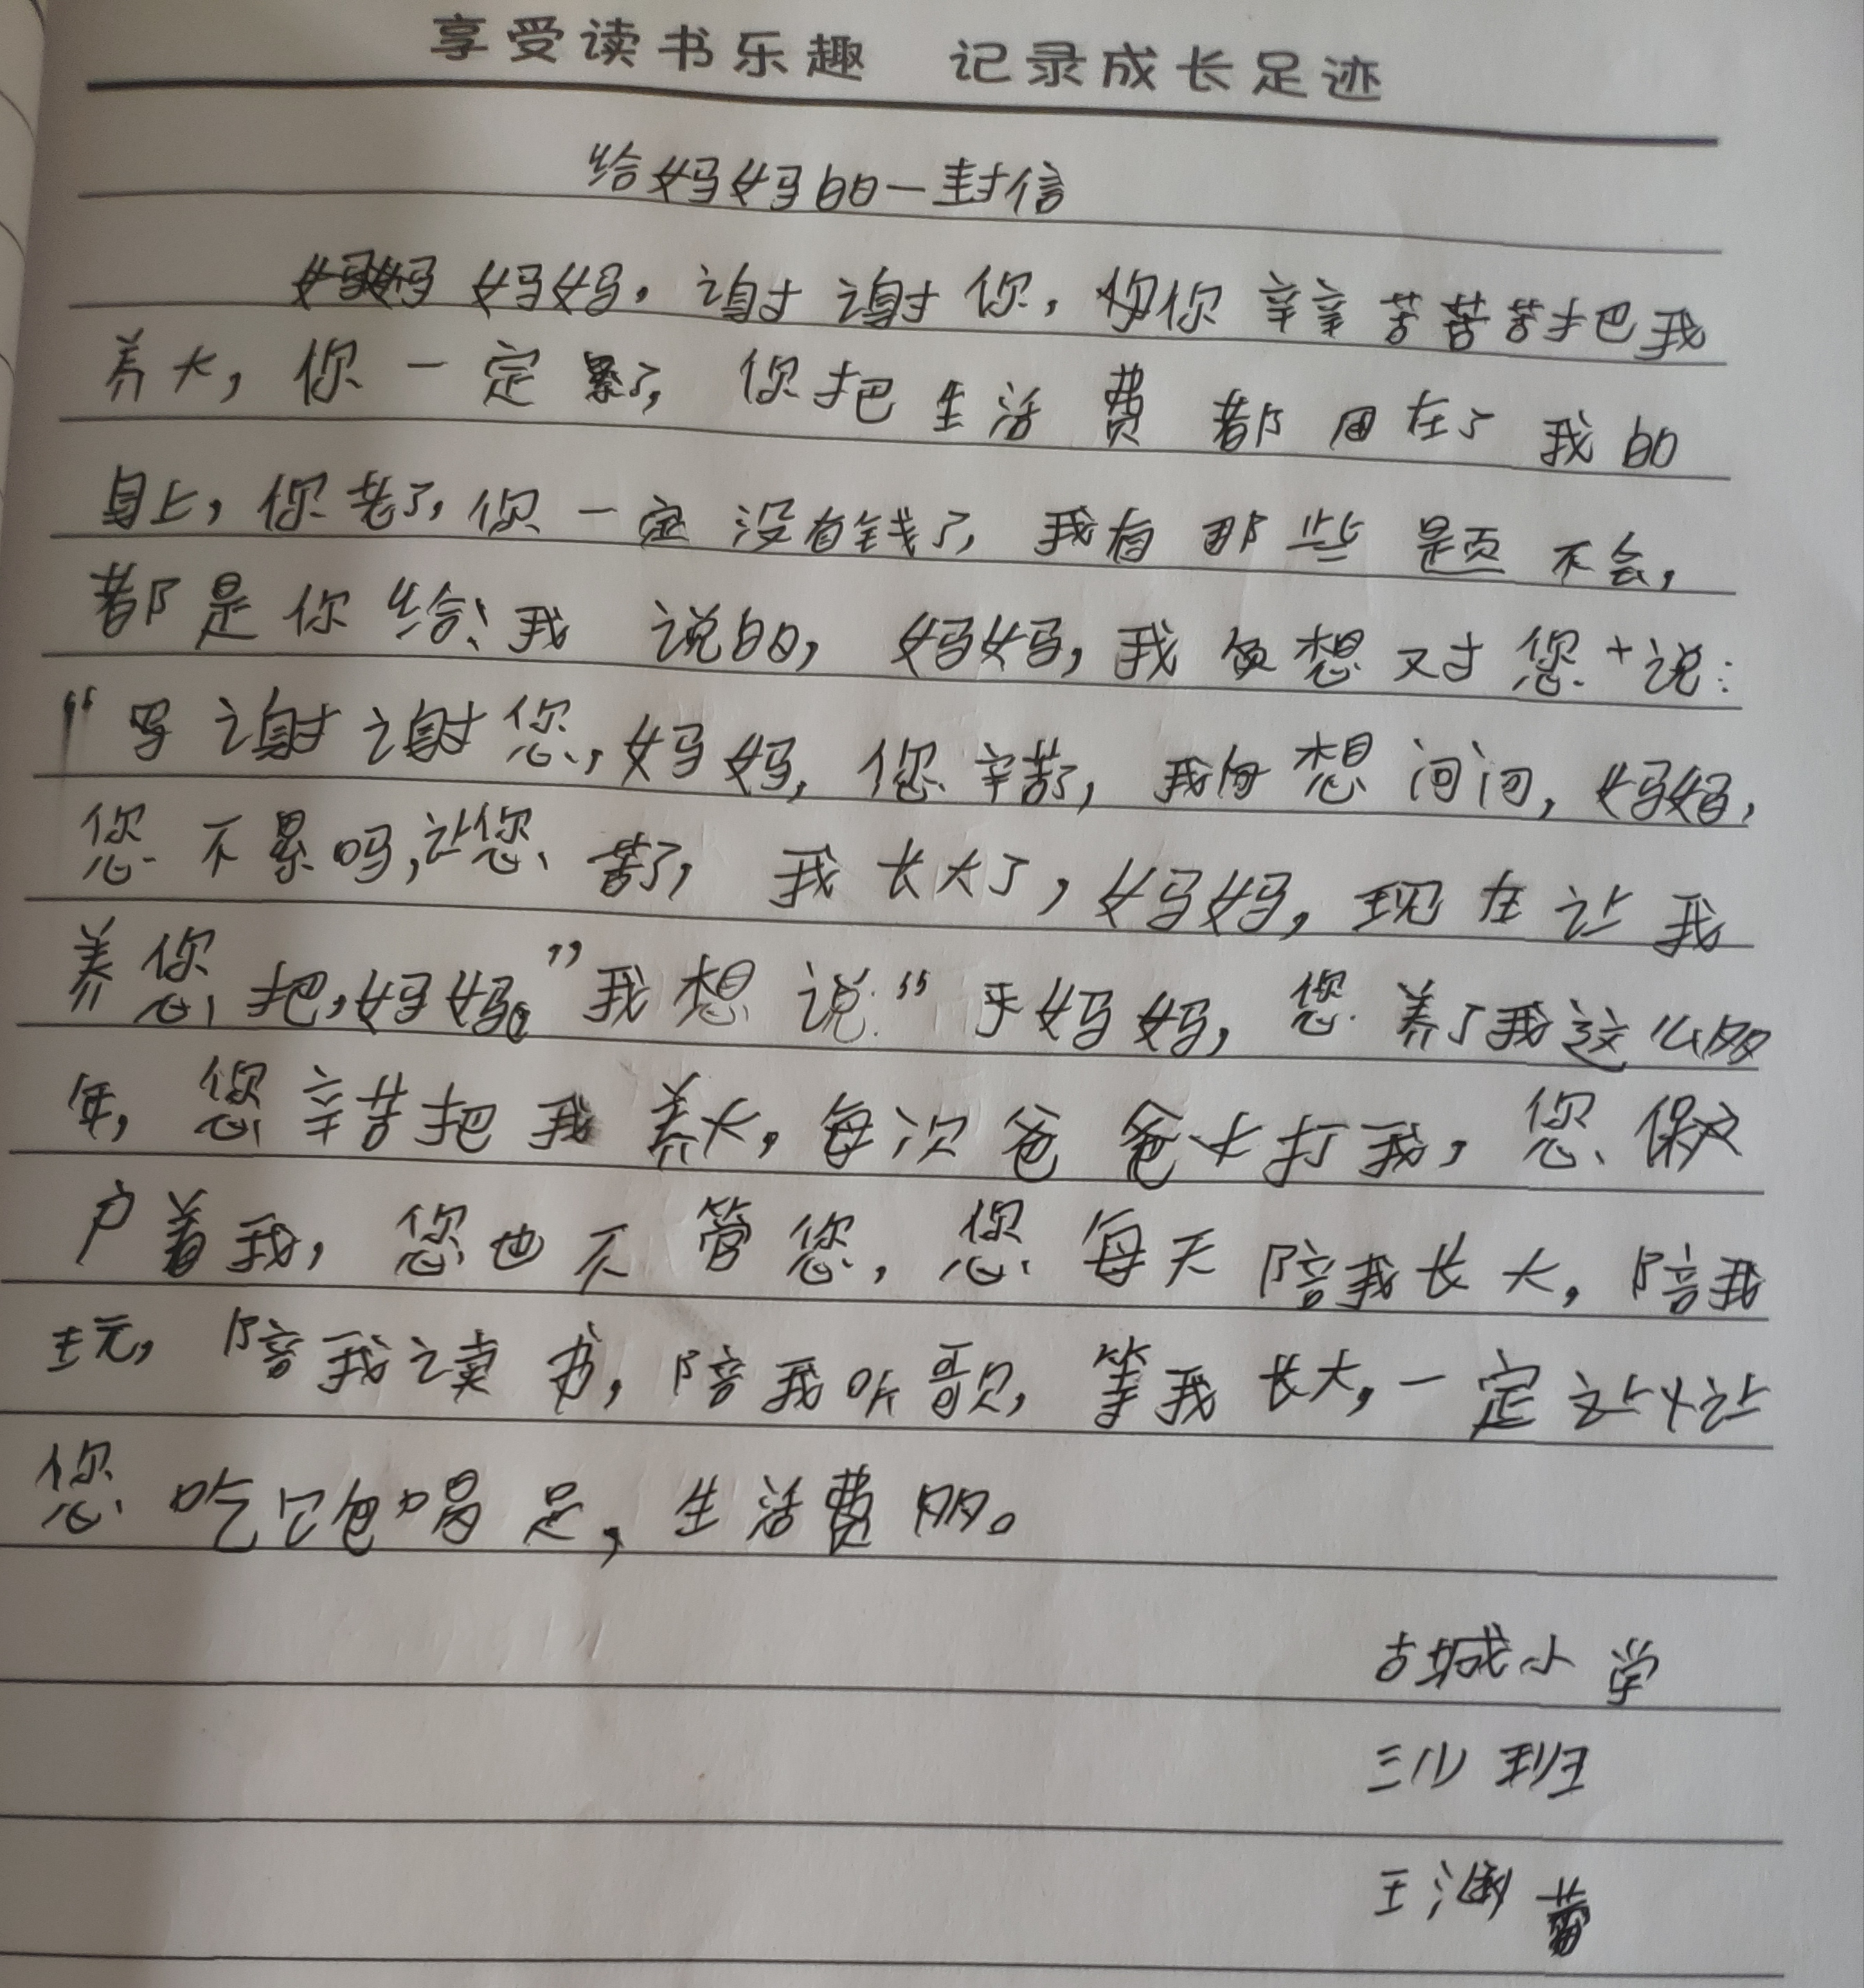 享受读书乐趣 记录成长足迹
给妈妈的一封信
妈妈，谢谢你，你辛辛苦苦苦把我
养大，你一定累了，你把生活费都用在了我的
身上，你老了，你一定没有钱了，我有那些题不会，
都是你给我说的，妈妈，我想对您说：
“谢谢您，妈妈，您辛苦了，我想问问，妈妈，
您不累吗，让您苦了，我长大了，妈妈，现在让我
养您把，妈妈。”我想说：“妈妈，您养了我这么多
年，您辛苦把我养大，每次爸爸打我，您保
户着我，您也不管您，您每天陪我长大，陪我
玩，陪我读书，陪我听歌，等我长大，一定让
您吃饱喝足，生活费多。
古城小学
三(1)班
王涵蕾